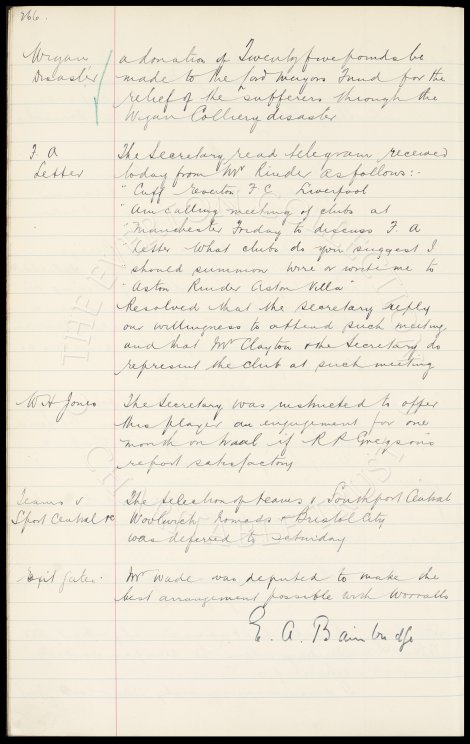 266.
Wigan Disaster a donation of Twenty five pounds be
made to the Lord Mayors Fund for the
relief of the sufferers through the
Wigan Colliery disaster
F. A Letter The Secretary read telegram received
today from Mr Rinder as follows:-
"Cuff Everton F C Liverpool
"Am calling meeting of clubs at
"Manchester Friday to discuss F. A
"Letter What clubs do you suggest I
"should summon wire or write me to
"Aston Rinder Aston Villa"
Resolved that the secretary reply
our willingness to attend such meeting
and that Mr Clayton & the Secretary do
represent the club at such meeting
W H Jones The Secretary was instructed to offer
this player an engagement for one
month on trial if R P Gregson's
report satisfactory
Teams v The selection of teams v Southport Central
Sport Central &c Woolwich Nomads & Bristol City
was deferred to Saturday
Exit gates. Mr Wade was deputed to make the
best arrangement possible with Worralls
E. A. Bainbridge